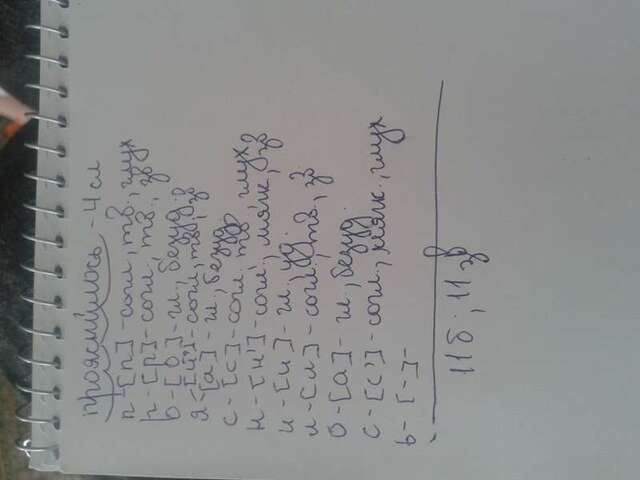 прояснилось - 4 сл
п-[п]-согл, тв., глух
р-[р]-согл, тв, зв
о-[о]-гл., безуд.
я-[й']-согл, тв, зв
[а]-гл., безуд
с-[с]-согл. тв глух
н-[н']-согл, мягк, зв
и-[и]-гл. уд.
л-[л]-согл., тв, зв.
о-[а]-гл., безуд.
с-[с']-согл, мягк., глух
ь-[-]-
11 б., 11 зв